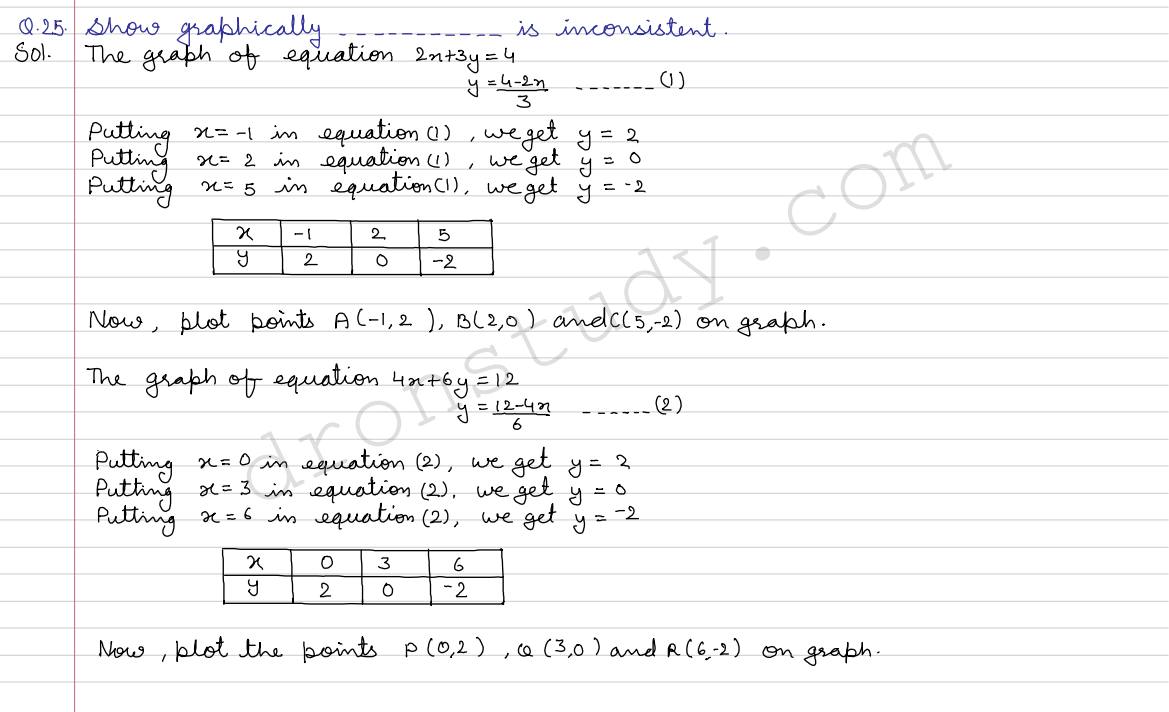 Q.25. Show graphically ----------- is inconsistent.
Sol. The graph of equation 2x+3y=4
y = (4-2x)/3 ------- (1)
Putting x= -1 in equation (1), we get y = 2
Putting x= 2 in equation (1), we get y = 0
Putting x= 5 in equation (1), we get y = -2
x -1 2 5
y 2 0 -2
Now, plot points A(-1,2), B(2,0) and C(5,-2) on graph.
The graph of equation 4x+6y=12
y = (12-4x)/6 ------ (2)
Putting x=0 in equation (2), we get y = 2
Putting x=3 in equation (2), we get y = 0
Putting x=6 in equation (2), we get y = -2
x 0 3 6
y 2 0 -2
Now, plot the points P(0,2), Q(3,0) and R(6,-2) on graph.
dronstudy.com